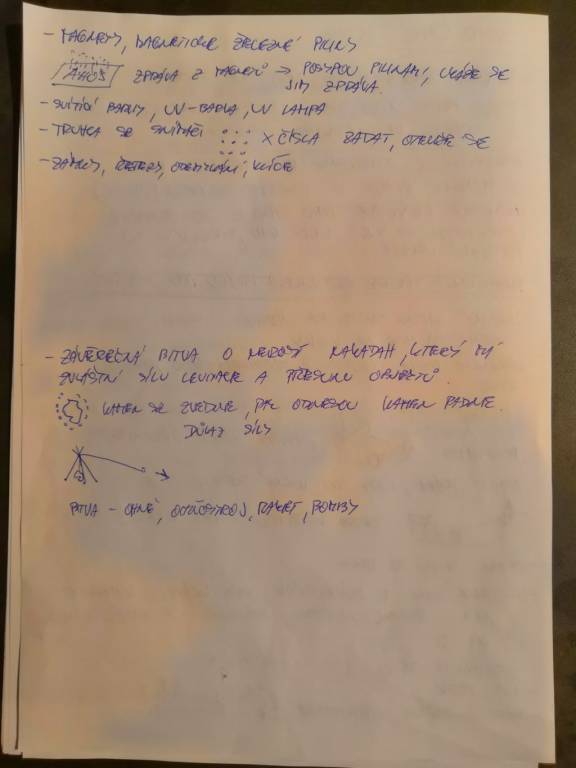 - MAGNETY, MAGNETICKÉ ŽELEZNÉ PILINY
AHOJ ZPRÁVA Z MAGNETŮ → POSYPOU PILINAMI, UKÁŽE SE
JIM ZPRÁVA.
- SVÍTÍCÍ BARVY, UV-BARVA, UV LAMPA
- TRUHLA SE SNÍMAČI X ČÍSLA ZADAT, OTEVŘE SE
- ZÁMKY, ODEMYKÁNÍ, KLÍČE
- ZÁVĚREČNÁ BITVA O KTERÝ MÁ
ZVLÁŠTNÍ SÍLU LEVITACE A PŘESUNU OBJEKTŮ.
KÁMEN SE ZVEDNE, PAK ODNESOU KÁMEN PADNE.
DŮKAZ SÍLY
BITVA - OHNĚ, OHŇOSTROJ, RAKET, BOMBY